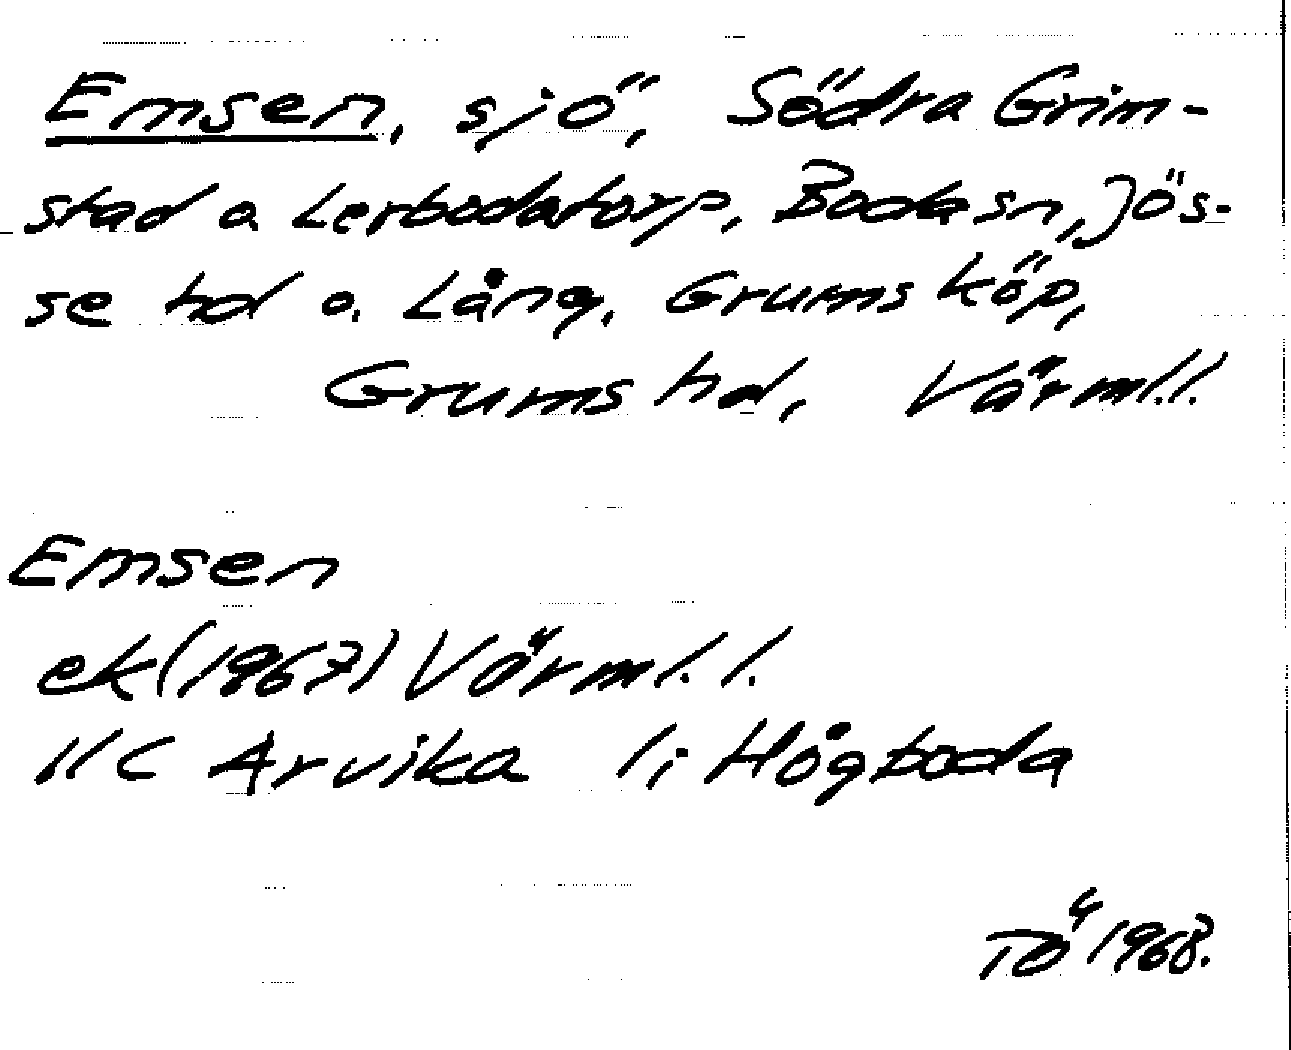 Emsen, sjö, Södra Grim-
stad o. Lerbodatorp, Boda sn, Jös-
se hd o. Lång, Grums köp,
Grums hd, Värml.l.
Emsen
ek (1967) Värml.l.
11C Arvika 1i Högboda
TÖ 1968.